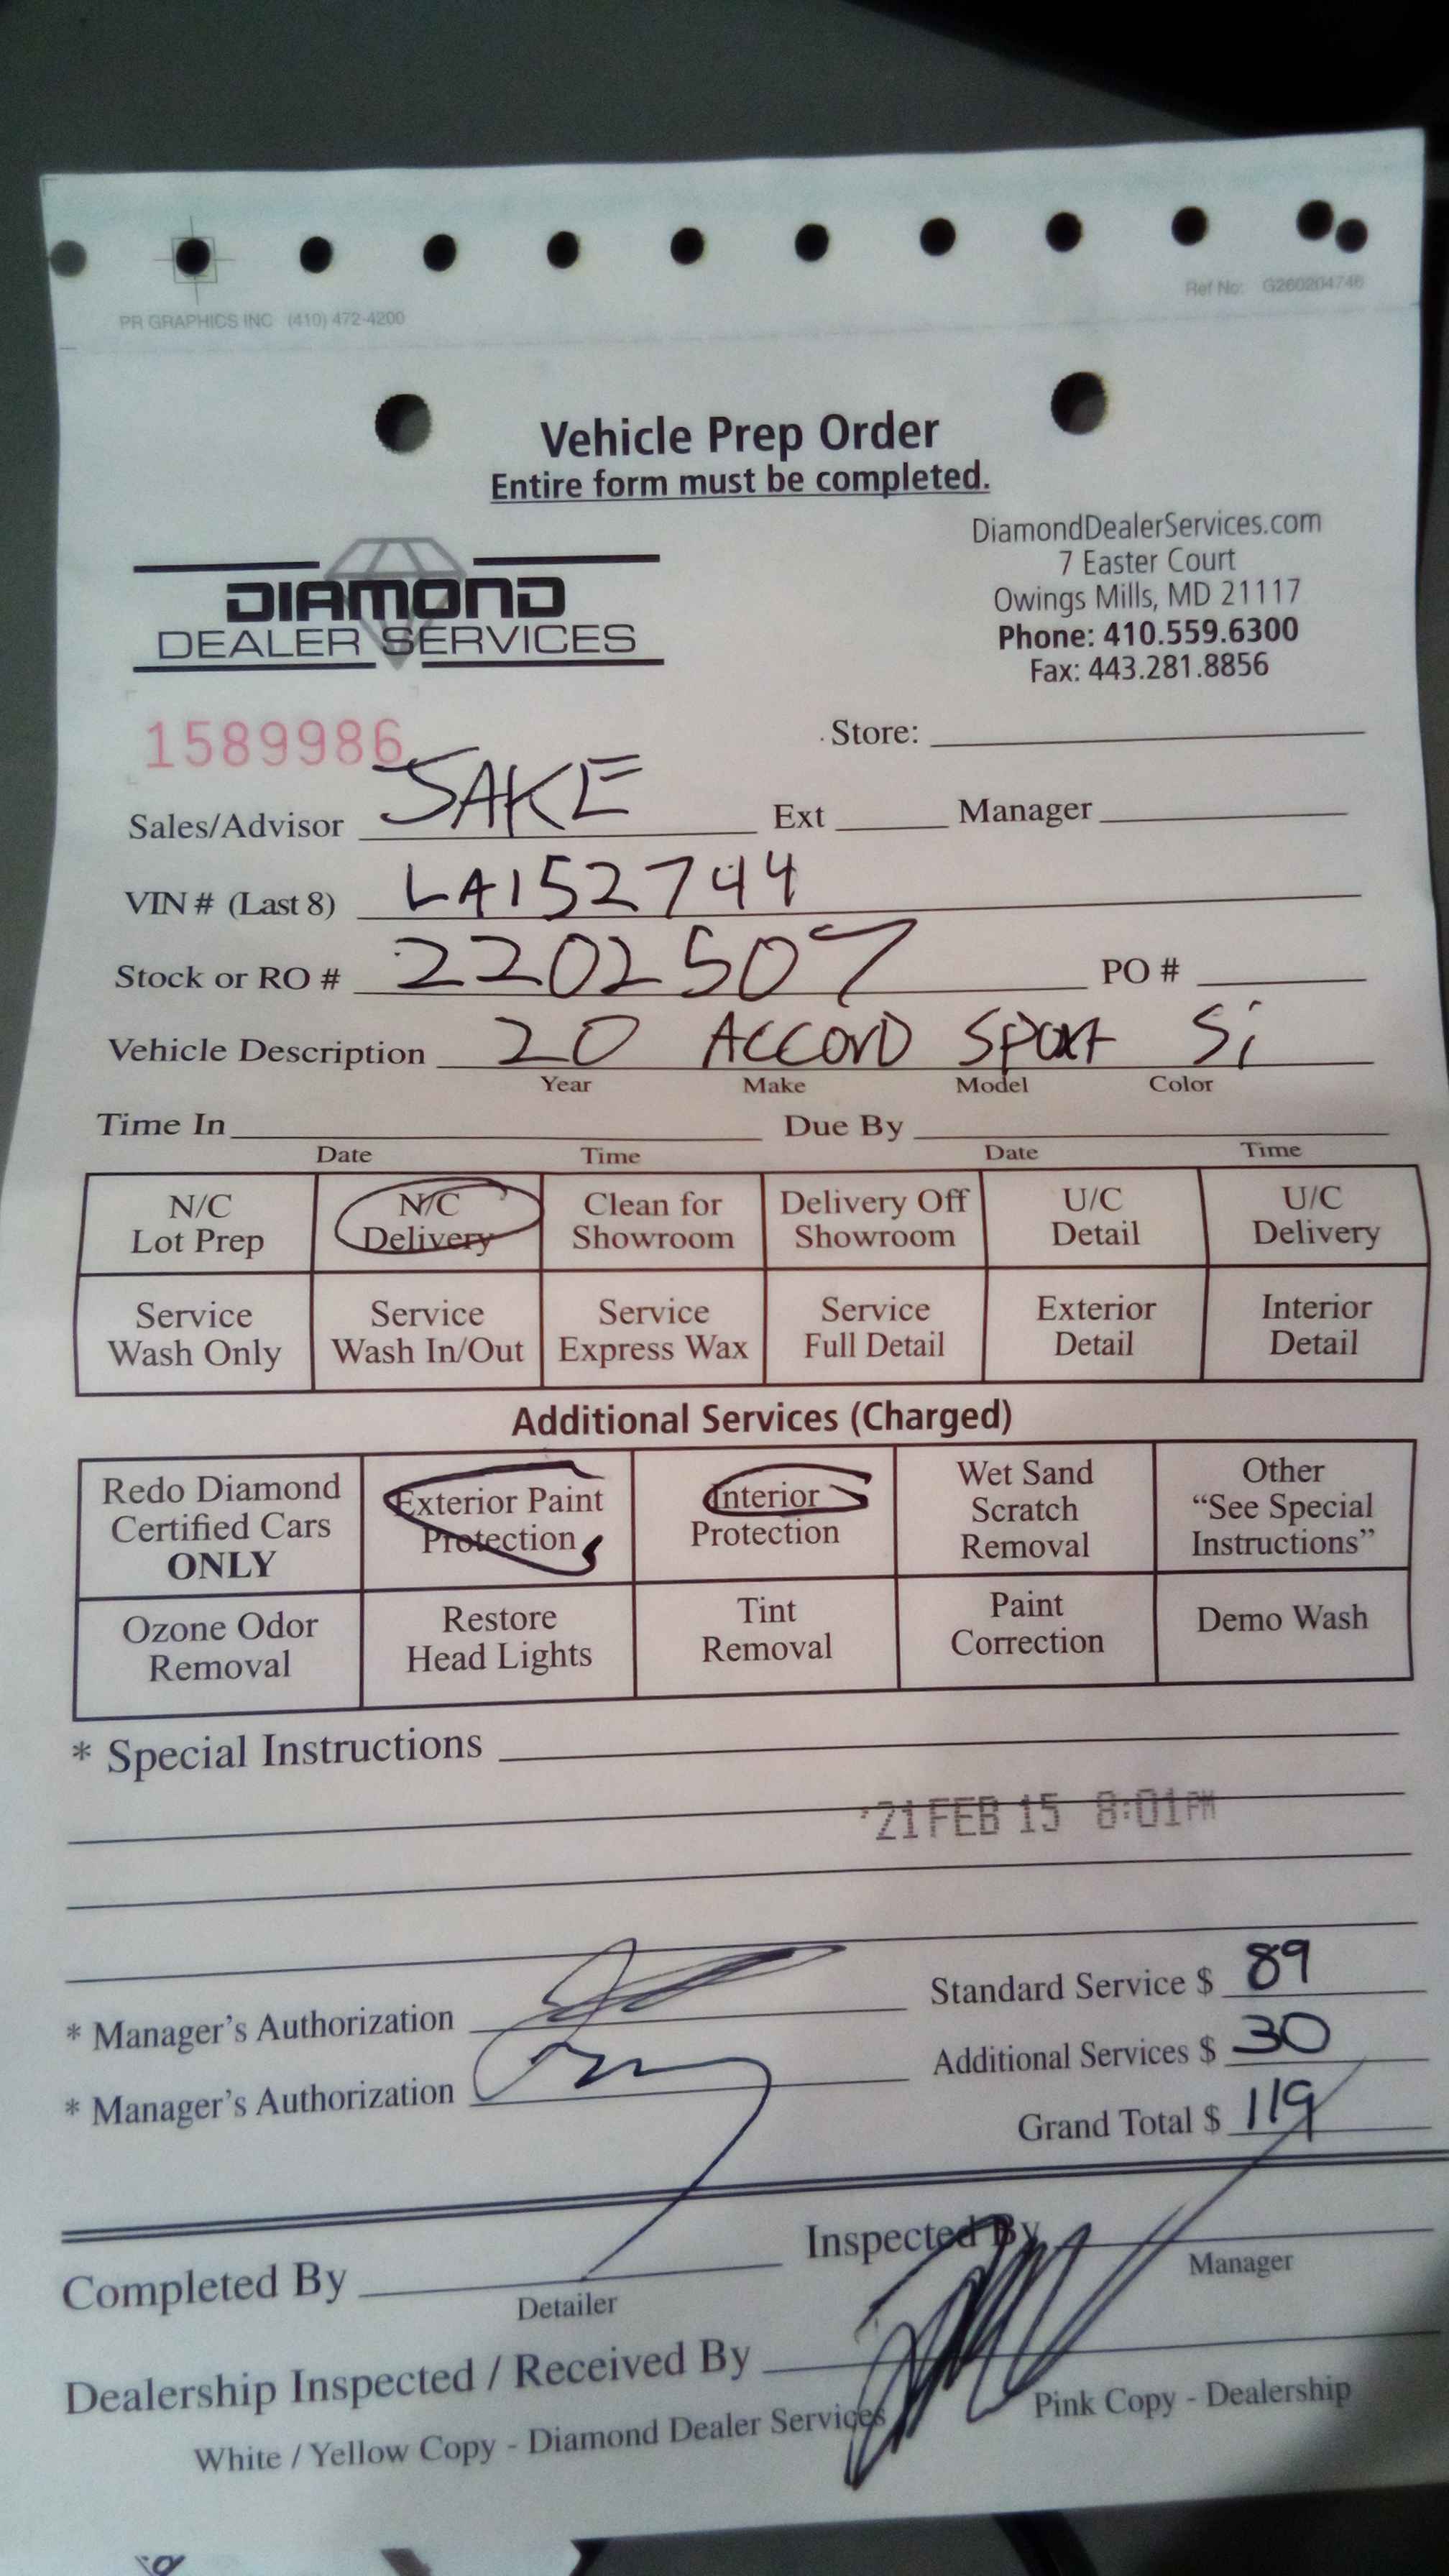 PR GRAPHICS INC (410) 472-4200
Ref No: G260204746
Vehicle Prep Order
Entire form must be completed.
DIAMOND
DEALER SERVICES
DiamondDealerServices.com
7 Easter Court
Owings Mills, MD 21117
Phone: 410.559.6300
Fax: 443.281.8856
1589986
Store:
Sales/Advisor JAKE Ext Manager
VIN # (Last 8) LA152744
Stock or RO # 2202507 PO #
Vehicle Description 20 ACCORD SPORT Si
Year Make Model Color
Time In Due By
Date Time Date Time
N/C Lot Prep
N/C Delivery
Clean for Showroom
Delivery Off Showroom
U/C Detail
U/C Delivery
Service Wash Only
Service Wash In/Out
Service Express Wax
Service Full Detail
Exterior Detail
Interior Detail
Additional Services (Charged)
Redo Diamond Certified Cars ONLY
Exterior Paint Protection
Interior Protection
Wet Sand Scratch Removal
Other "See Special Instructions"
Ozone Odor Removal
Restore Head Lights
Tint Removal
Paint Correction
Demo Wash
* Special Instructions
'21 FEB 15 8:01PM
* Manager's Authorization
Standard Service $ 89
* Manager's Authorization
Additional Services $ 30
Grand Total $ 119
Completed By
Detailer
Inspected By
Manager
Dealership Inspected / Received By
White / Yellow Copy - Diamond Dealer Services
Pink Copy - Dealership